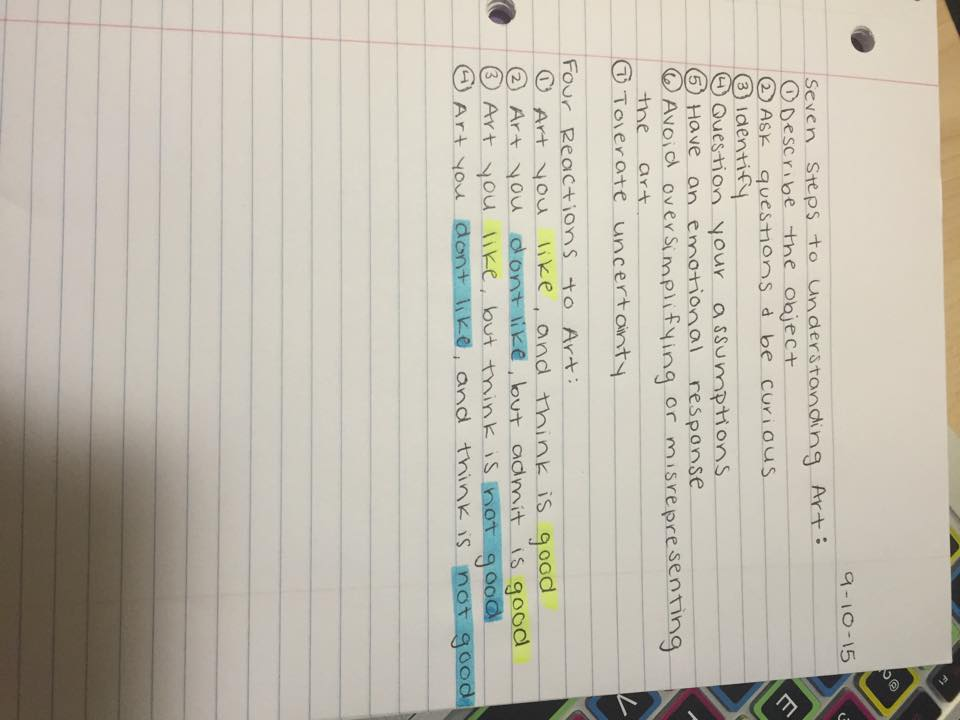 9-10-15
Seven Steps to Understanding Art:
① Describe the object
② Ask questions & be curious
③ Identify
④ Question your assumptions
⑤ Have an emotional response
⑥ Avoid oversimplifying or misrepresenting
the art.
⑦ Tolerate uncertainty
Four Reactions to Art:
① Art you like, and think is good
② Art you dont like, but admit is good
③ Art you like, but think is not good
④ Art you dont like, and think is not good
E
V
F1
@